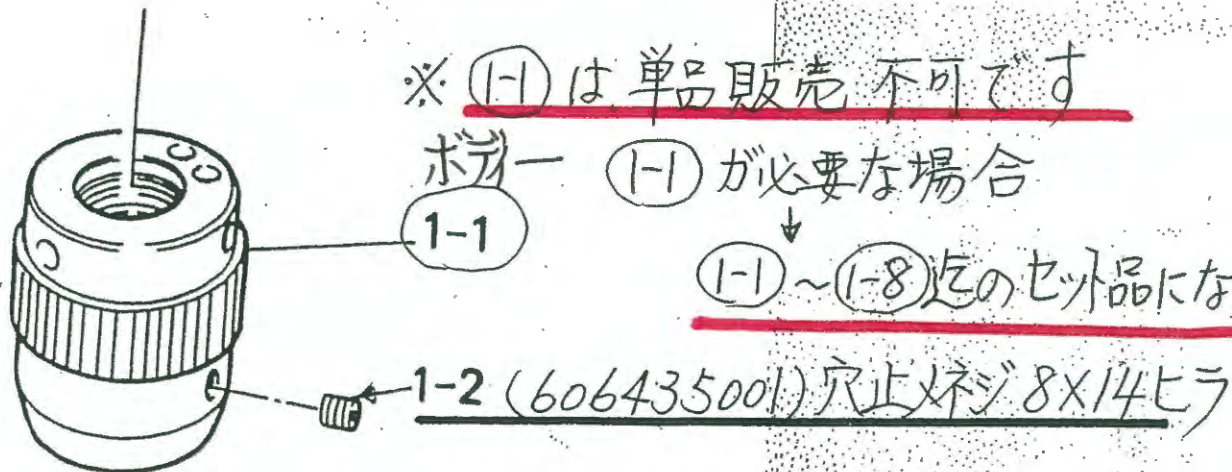 ※ 1-1 は 単品販売 不可です
ボディー 1-1 が必要な場合
↓
1-1
1-1 ~ 1-8 迄の セット品にな
1-2 (606435001) 穴止メネジ 8X14 ヒラ